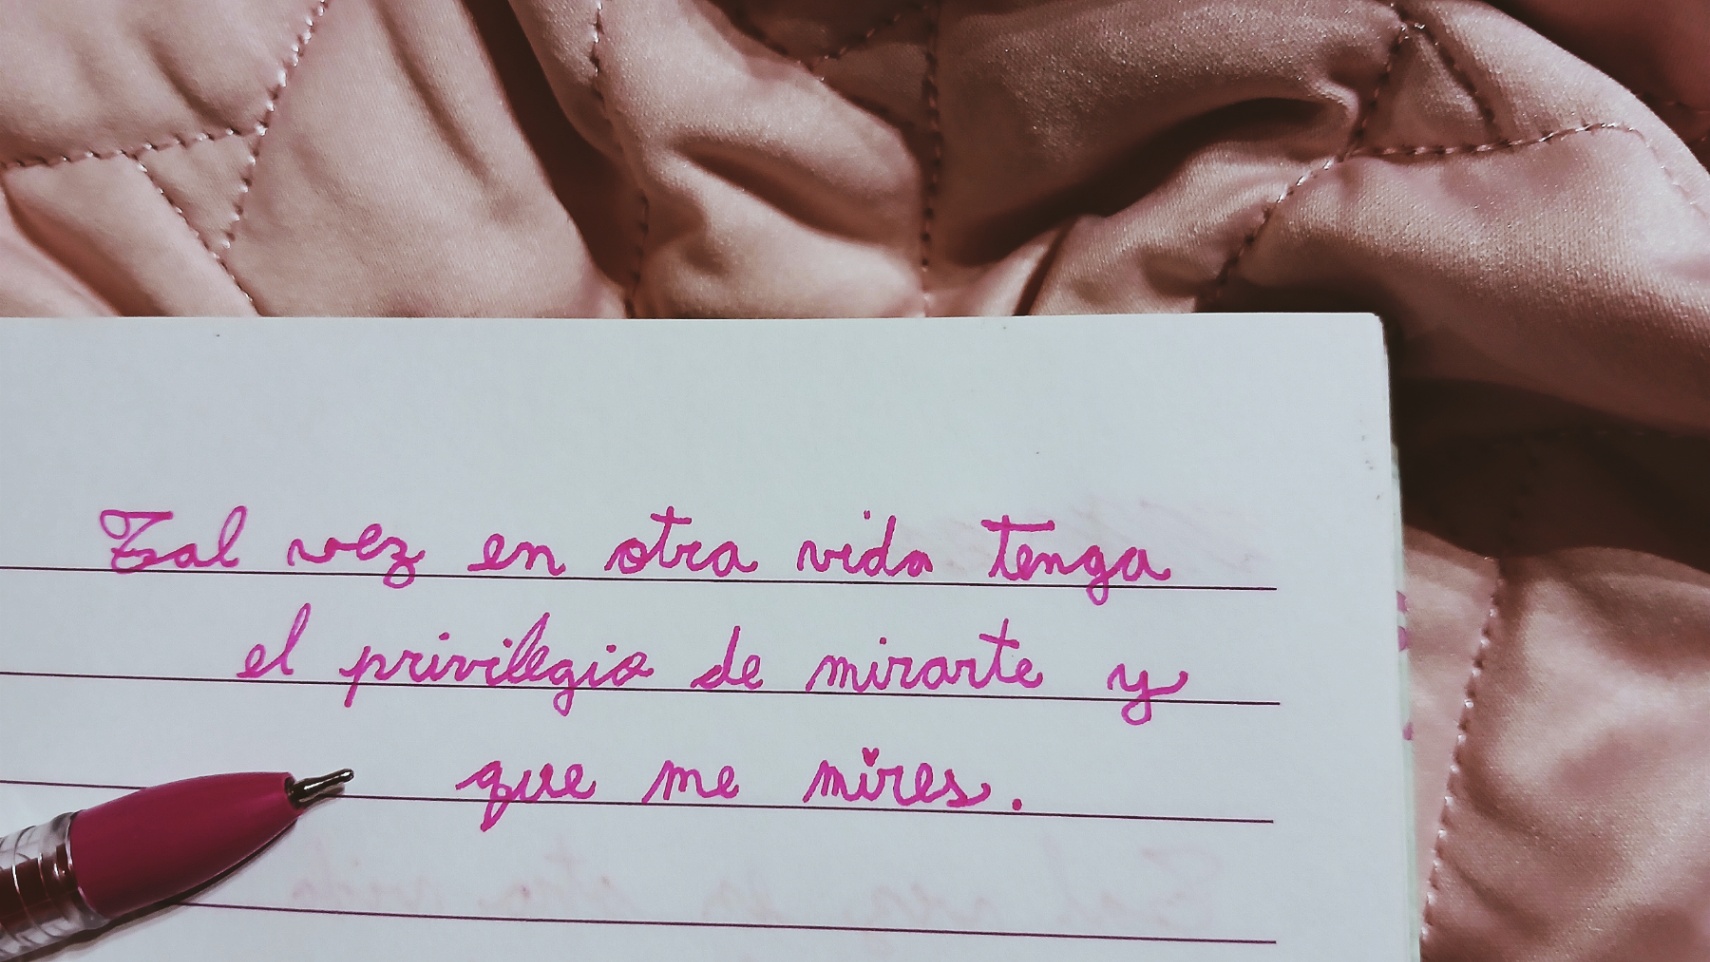 Tal vez en otra vida tenga
el privilegio de mirarte y
que me mires.